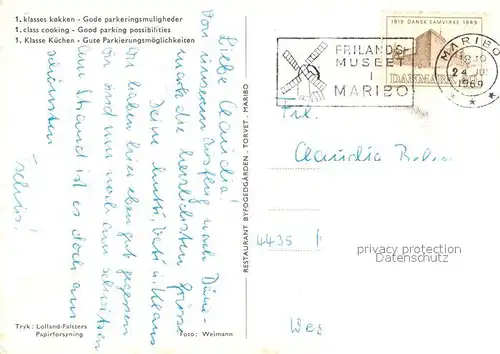 1. klasses køkken - Gode parkeringsmuligheder
1. class cooking - Good parking possibilities
1. Klasse Küchen - Gute Parkierungsmöglichkeiten
Liebe Claudia!
Von unserem Ausflug nach Däne-
mark die herzlichsten Grüsse
Deine Mutti, Vati u. Klaus
Wir haben hier eben gut gegessen
und sind nun noch am
Am Strand ist es doch am
schönsten
Tschüs!
Tryk: Lolland-Falsters
Papirforsyning
Foto: Weimann
RESTAURANT BYFOGEDGÅRDEN . TORVET . MARIBO
FRILANDS-
MUSEET
I
MARIBO
1919 DANSK SAMVIRKE 1969
DANMARK
MARIBO
24
1969
Frl.
Claudia
4435
privacy protection
Datenschutz
Wes